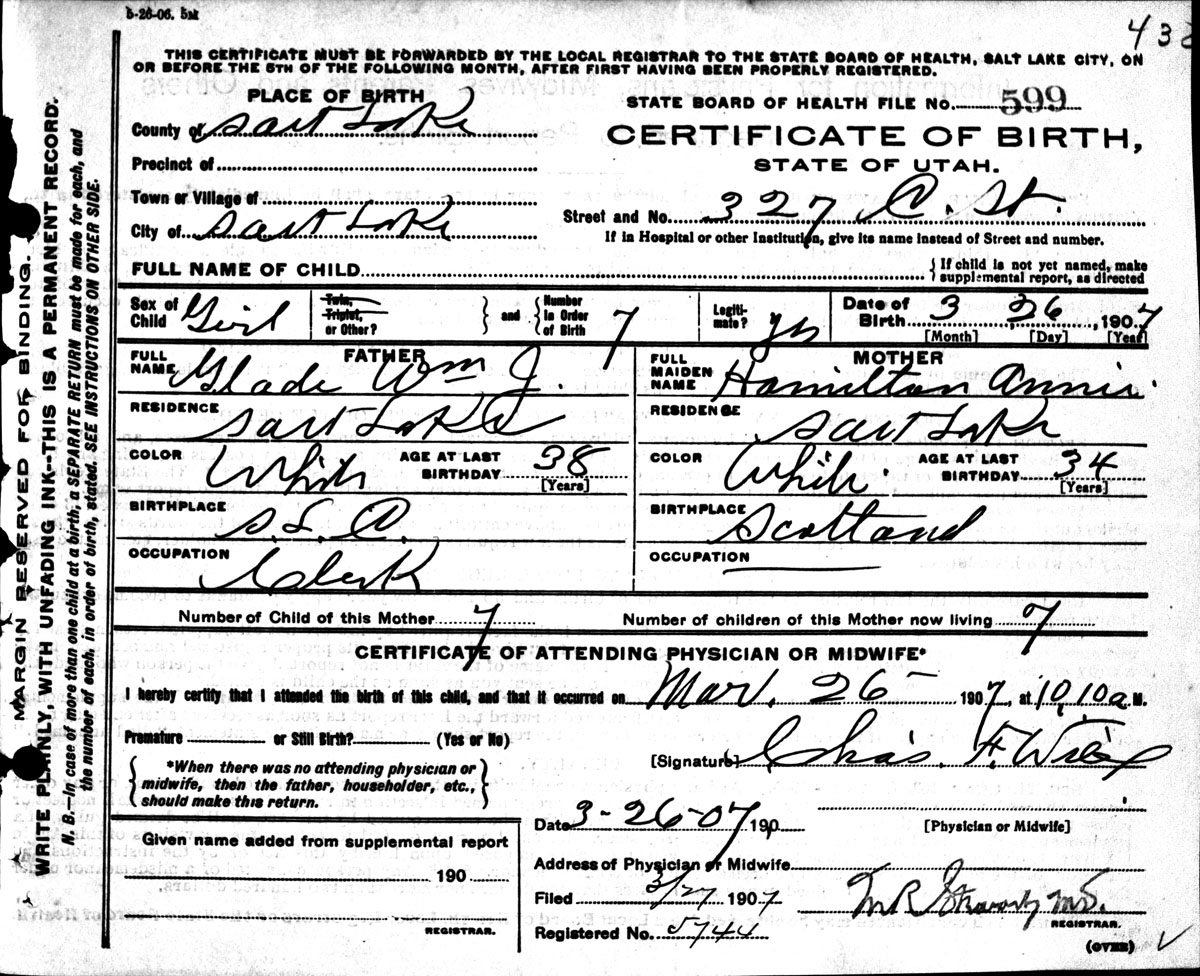 5-26-06. 5M
438
THIS CERTIFICATE MUST BE FORWARDED BY THE LOCAL REGISTRAR TO THE STATE BOARD OF HEALTH, SALT LAKE CITY, ON
OR BEFORE THE 5TH OF THE FOLLOWING MONTH, AFTER FIRST HAVING BEEN PROPERLY REGISTERED.
MARGIN RESERVED FOR BINDING.
WRITE PLAINLY, WITH UNFADING INK—THIS IS A PERMANENT RECORD.
N. B.—In case of more than one child at a birth, a SEPARATE RETURN must be made for each, and
the number of each, in order of birth, stated. SEE INSTRUCTIONS ON OTHER SIDE.
PLACE OF BIRTH
STATE BOARD OF HEALTH FILE NO. 599
County of Salt Lake
CERTIFICATE OF BIRTH,
Precinct of
STATE OF UTAH.
Town or Village of
Street and No. 327 C. St.
City of Salt Lake
If in Hospital or other Institution, give its name instead of Street and number.
FULL NAME OF CHILD
{ If child is not yet named, make
supplemental report, as directed
Sex of Child Girl
Twin, Triplet, or Other?
} and { Number in Order of Birth 7
Legiti-mate? yes
Date of Birth 3 26, 1907
[Month] [Day] [Year]
FATHER
FULL NAME Glade Wm J.
MOTHER
FULL MAIDEN NAME Hamilton Annie
RESIDENCE Salt Lake
RESIDENCE Salt Lake
COLOR White AGE AT LAST BIRTHDAY 38 [Years]
COLOR White AGE AT LAST BIRTHDAY 34 [Years]
BIRTHPLACE S. L. C.
BIRTHPLACE Scotland
OCCUPATION Clerk
OCCUPATION
Number of Child of this Mother 7 Number of children of this Mother now living 7
CERTIFICATE OF ATTENDING PHYSICIAN OR MIDWIFE*
I hereby certify that I attended the birth of this child, and that it occurred on Mar. 26 1907, at 10,10 a M.
Premature or Still Birth? (Yes or No)
[Signature] Chas. F. Wilcox
{ *When there was no attending physician or
midwife, then the father, householder, etc.,
should make this return. }
Date 3-26-07 190
[Physician or Midwife]
Given name added from supplemental report
190
REGISTRAR.
Address of Physician or Midwife
Filed 3/27 1907
M.D.
REGISTRAR.
Registered No. 5744
(OVER)